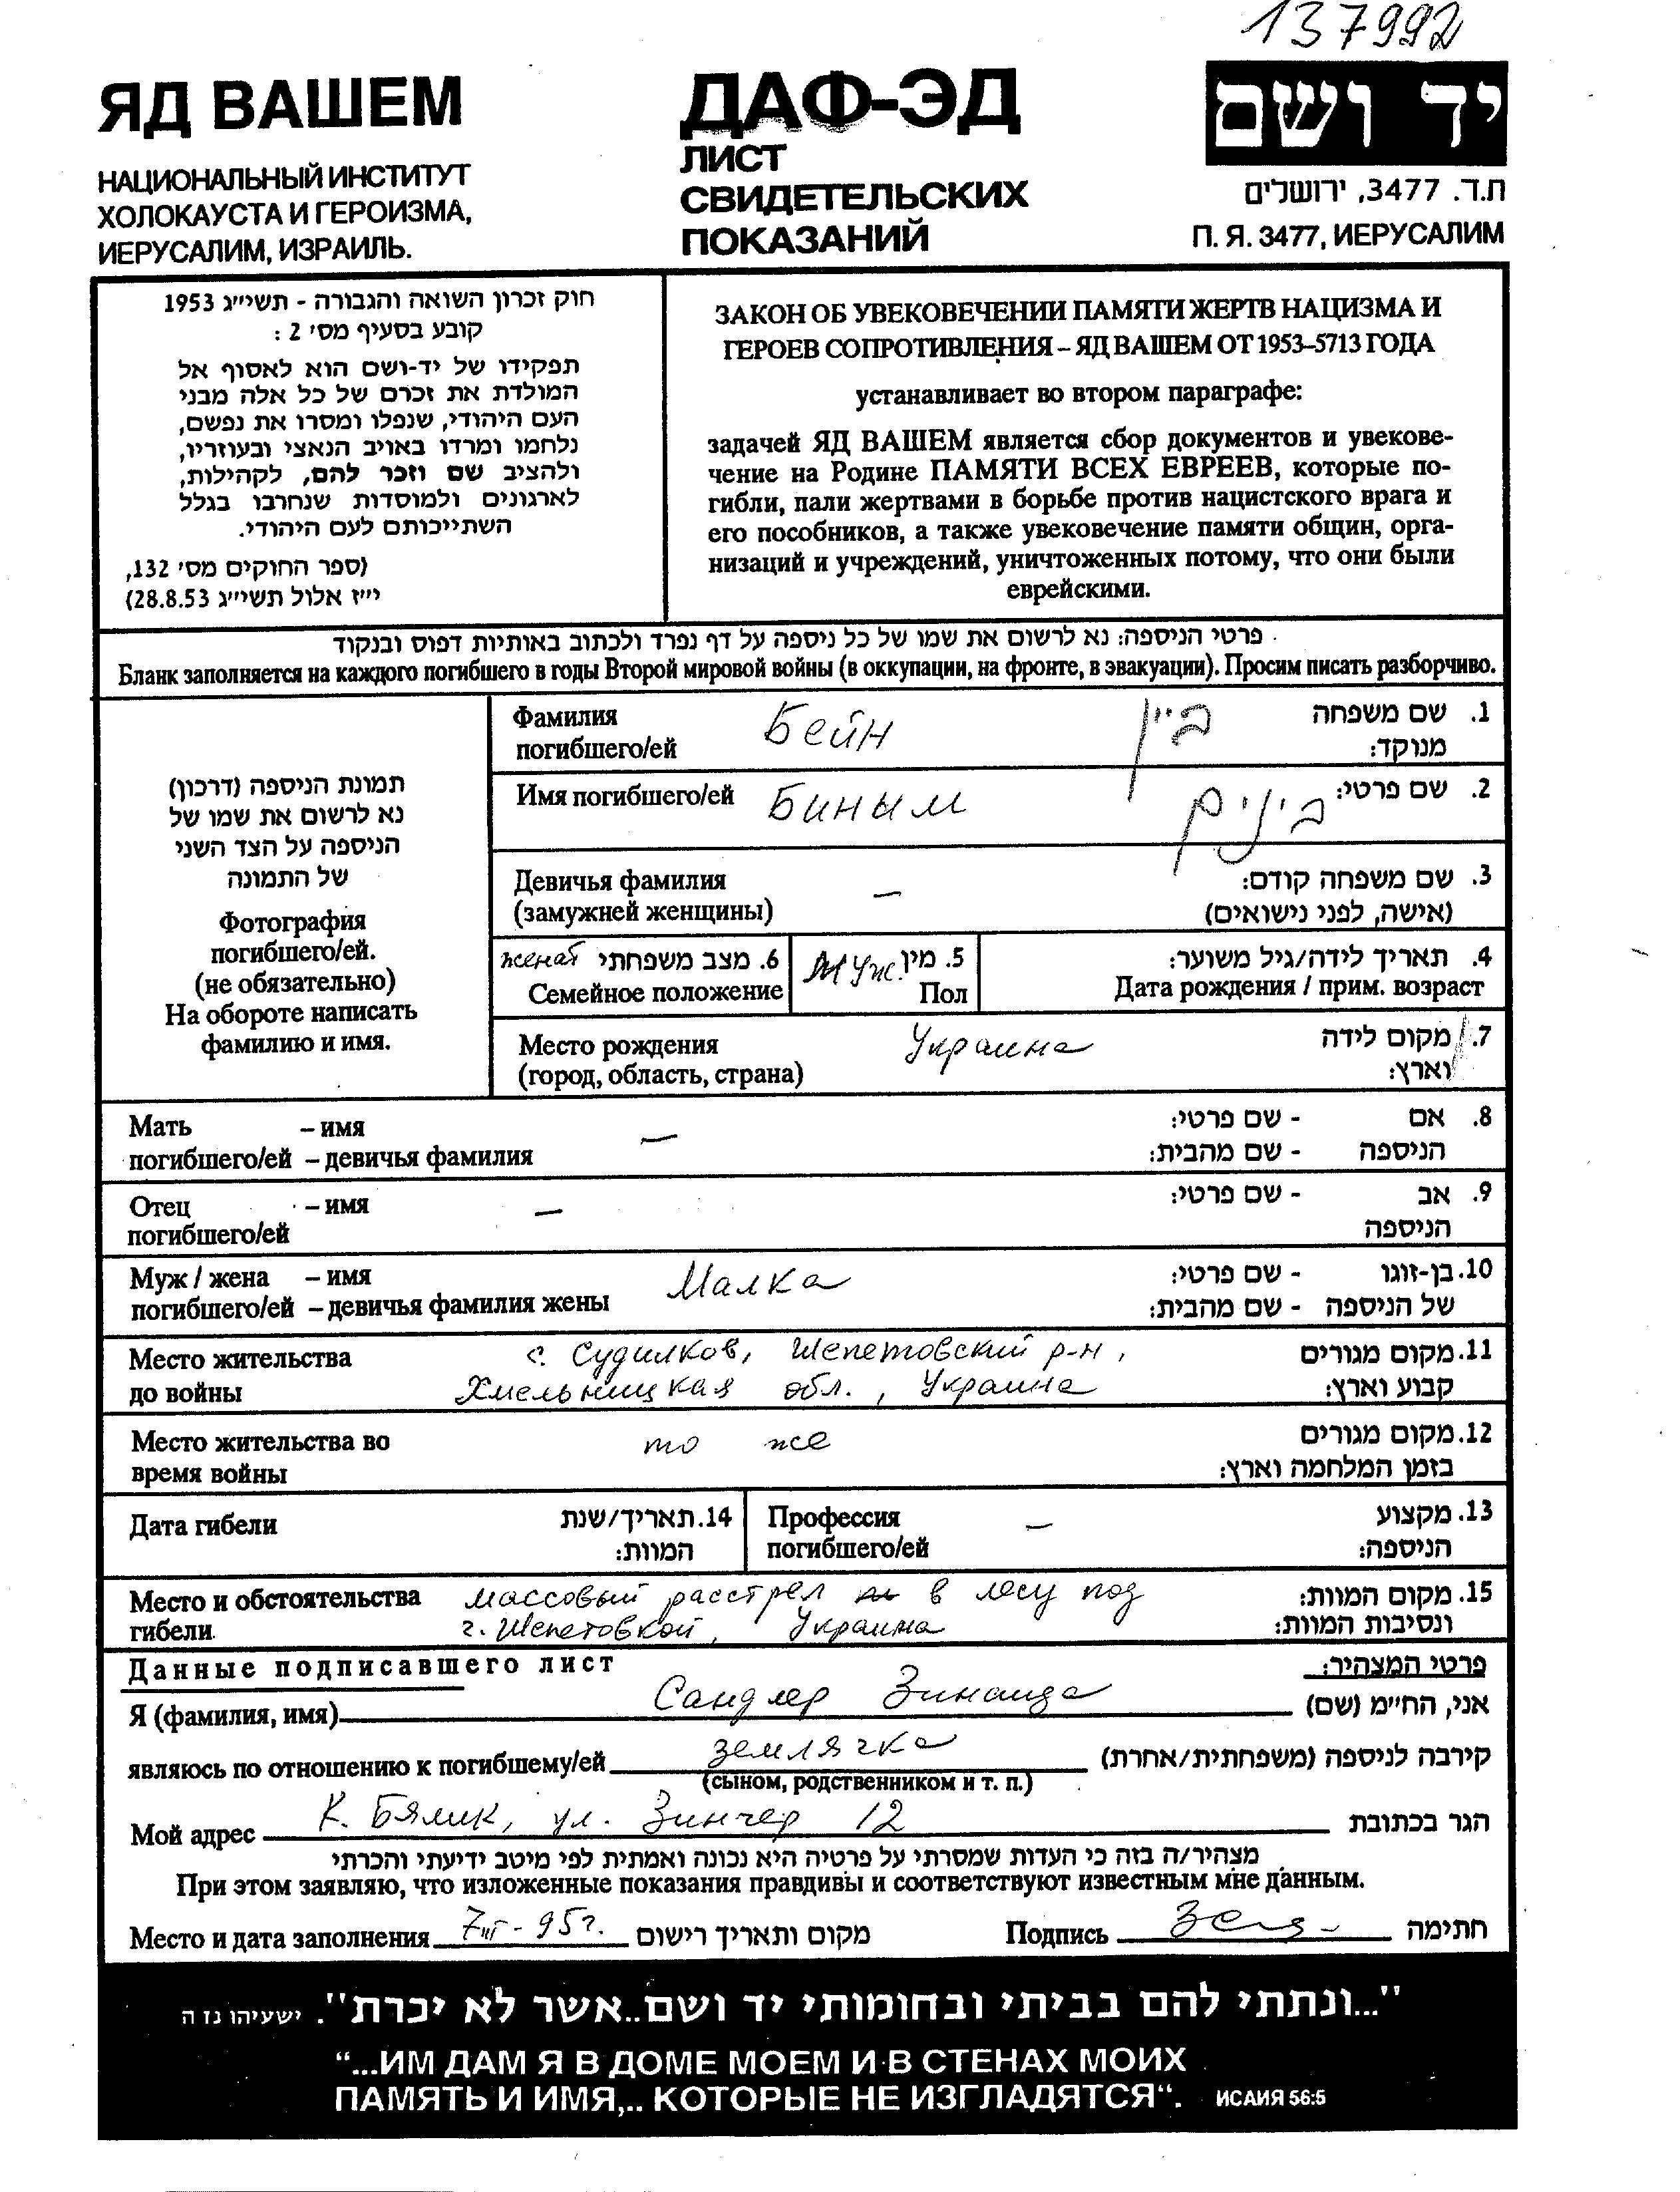 137992
ЯД ВАШЕМ
НАЦИОНАЛЬНЫЙ ИНСТИТУТ
ХОЛОКАУСТА И ГЕРОИЗМА,
ИЕРУСАЛИМ, ИЗРАИЛЬ.
ДАФ-ЭД
ЛИСТ
СВИДЕТЕЛЬСКИХ
ПОКАЗАНИЙ
יד ושם
ת.ד. 3477, ירושלים
П. Я. 3477, ИЕРУСАЛИМ
חוק זכרון השואה והגבורה - תשי״ג 1953
קובע בסעיף מס׳ 2 :
תפקידו של יד-ושם הוא לאסוף אל
המולדת את זכרם של כל אלה מבני
העם היהודי, שנפלו ומסרו את נפשם,
נלחמו ומרדו באויב הנאצי ובעוזריו,
ולהציב שם וזכר להם, לקהילות,
לארגונים ולמוסדות שנחרבו בגלל
השתייכותם לעם היהודי.
(ספר החוקים מס׳ 132,
י״ז אלול תשי״ג 28.8.53)
ЗАКОН ОБ УВЕКОВЕЧЕНИИ ПАМЯТИ ЖЕРТВ НАЦИЗМА И
ГЕРОЕВ СОПРОТИВЛЕНИЯ – ЯД ВАШЕМ ОТ 1953–5713 ГОДА
устанавливает во втором параграфе:
задачей ЯД ВАШЕМ является сбор документов и увекове-
чение на Родине ПАМЯТИ ВСЕХ ЕВРЕЕВ, которые по-
гибли, пали жертвами в борьбе против нацистского врага и
его пособников, а также увековечение памяти общин, орга-
низаций и учреждений, уничтоженных потому, что они были
еврейскими.
פרטי הניספה: נא לרשום את שמו של כל ניספה על דף נפרד ולכתוב באותיות דפוס ובנקוד
Бланк заполняется на каждого погибшего в годы Второй мировой войны (в оккупации, на фронте, в эвакуации). Просим писать разборчиво.
תמונת הניספה (דרכון)
נא לרשום את שמו של
הניספה על הצד השני
של התמונה
Фотография
погибшего/ей.
(не обязательно)
На обороте написать
фамилию и имя.
Фамилия Бейн ביין 1. שם משפחה
погибшего/ей מנוקד:
Имя погибшего/ей Биным בינים 2. שם פרטי:
Девичья фамилия – 3. שם משפחה קודם:
(замужней женщины) (אישה, לפני נישואים)
женат 6. מצב משפחתי муж. 5. מין 4. תאריך לידה/גיל משוער:
Семейное положение Пол Дата рождения / прим. возраст
Место рождения Украина 7. מקום לידה
(город, область, страна) וארץ:
Мать – имя – 8. אם - שם פרטי:
погибшего/ей – девичья фамилия הניספה - שם מהבית:
Отец – имя – 9. אב - שם פרטי:
погибшего/ей הניספה
Муж / жена – имя Малка 10. בן-זוגו - שם פרטי:
погибшего/ей – девичья фамилия жены של הניספה - שם מהבית:
Место жительства с. Судилков, Шепетовский р-н, 11. מקום מגורים
до войны Хмельницкая обл., Украина קבוע וארץ:
Место жительства во то же 12. מקום מגורים
время войны בזמן המלחמה וארץ:
Дата гибели 14. תאריך/שנת Профессия – 13. מקצוע
המוות: погибшего/ей הניספה:
Место и обстоятельства массовый расстрел в лесу под 15. מקום המוות:
гибели г. Шепетовкой, Украина ונסיבות המוות:
Данные подписавшего лист פרטי המצהיר:
Я (фамилия, имя) Сандлер Зинаида אני, החי״מ (שם)
являюсь по отношению к погибшему/ей землячка קירבה לניספה (משפחתית/אחרת)
(сыном, родственником и т. п.)
Мой адрес К. Бялик, ул. Зинчер 12 הגר בכתובת
מצהיר/ה בזה כי העדות שמסרתי על פרטיה היא נכונה ואמתית לפי מיטב ידיעתי והכרתי
При этом заявляю, что изложенные показания правдивы и соответствуют известным мне данным.
Место и дата заполнения 7 III - 95 г. מקום ותאריך רישום Подпись חתימה
"...ונתתי להם בביתי ובחומותי יד ושם..אשר לא יכרת". ישעיהו נז ה
“...ИМ ДАМ Я В ДОМЕ МОЕМ И В СТЕНАХ МОИХ
ПАМЯТЬ И ИМЯ,.. КОТОРЫЕ НЕ ИЗГЛАДЯТСЯ“. ИСАИЯ 56:5